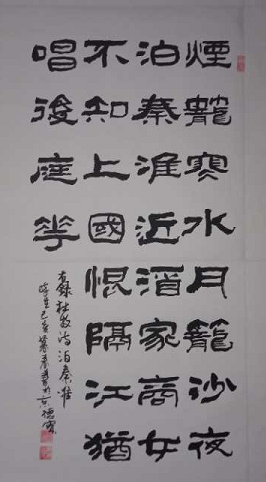 煙籠寒水月籠沙夜
泊秦淮近酒家商女
不知上國恨隔江猶
唱後庭花
右錄杜牧诗泊秦淮